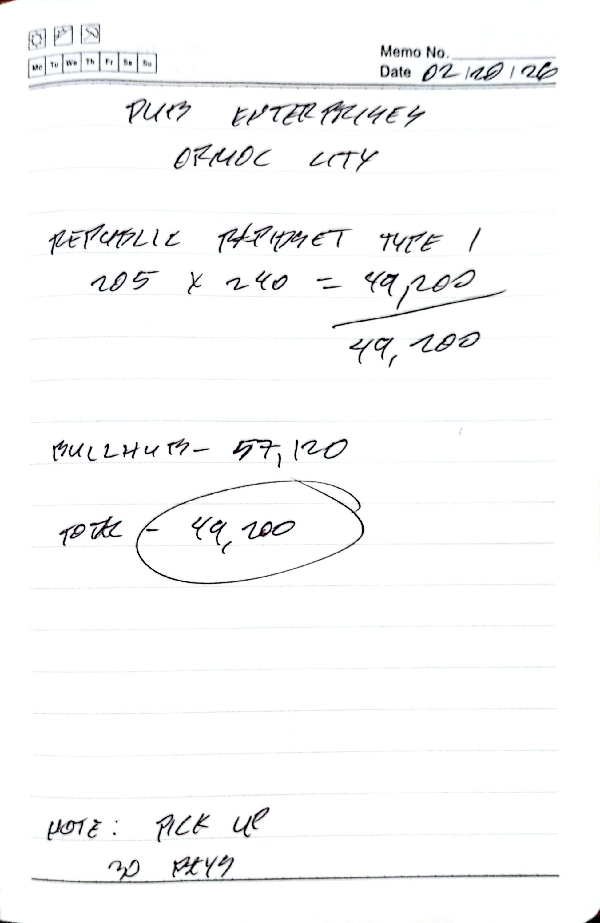 Mo Tu We Th Fr Sa Su
Memo No.
Date 02/20/26
ENTERPRISES
ORMOC CITY
REPUBLIC RAPIDSET TYPE 1
205 x 240 = 49,200
49,200
BULLHUB- 57,120
TOTAL - 49,200
NOTE: PICK UP
30 DAYS